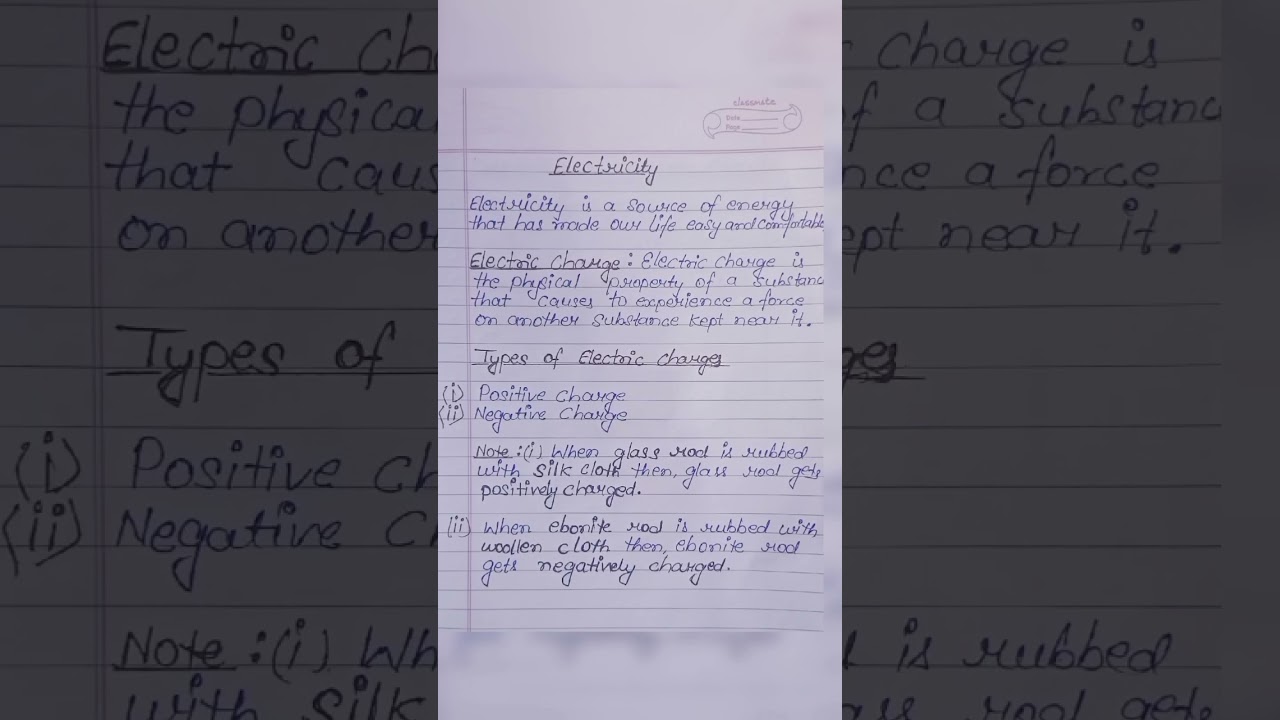 classmate
Date
Page
Electricity
Electricity is a source of energy
that has made our life easy and comfortable
Electric Charge : Electric charge is
the physical property of a substanc
that causes to experience a force
on another substance kept near it.
Types of Electric charges
(i) Positive Charge
(ii) Negative Charge
Note :(i) When glass rod is rubbed
with silk cloth then, glass rod gets
positively charged.
(ii) When ebonite rod is rubbed with
woollen cloth then, ebonite rod
gets negatively charged.